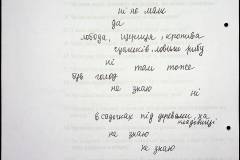 ні не мали
да
лобода, щириця, кропива
ловили рибу
ні там тоже
був голод
не знаю ні
в садочках під деревами, на
не знаю
не знаю